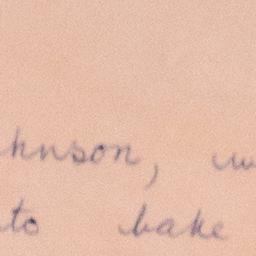 hnson,
to bake